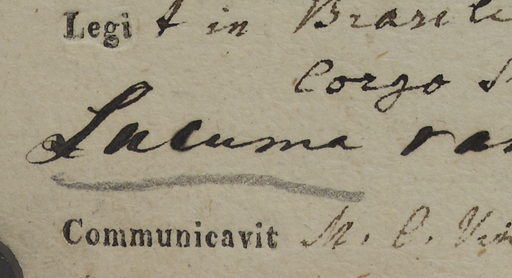 Legi t in Brasil
Corgo
Lucuma
Communicavit M. C.